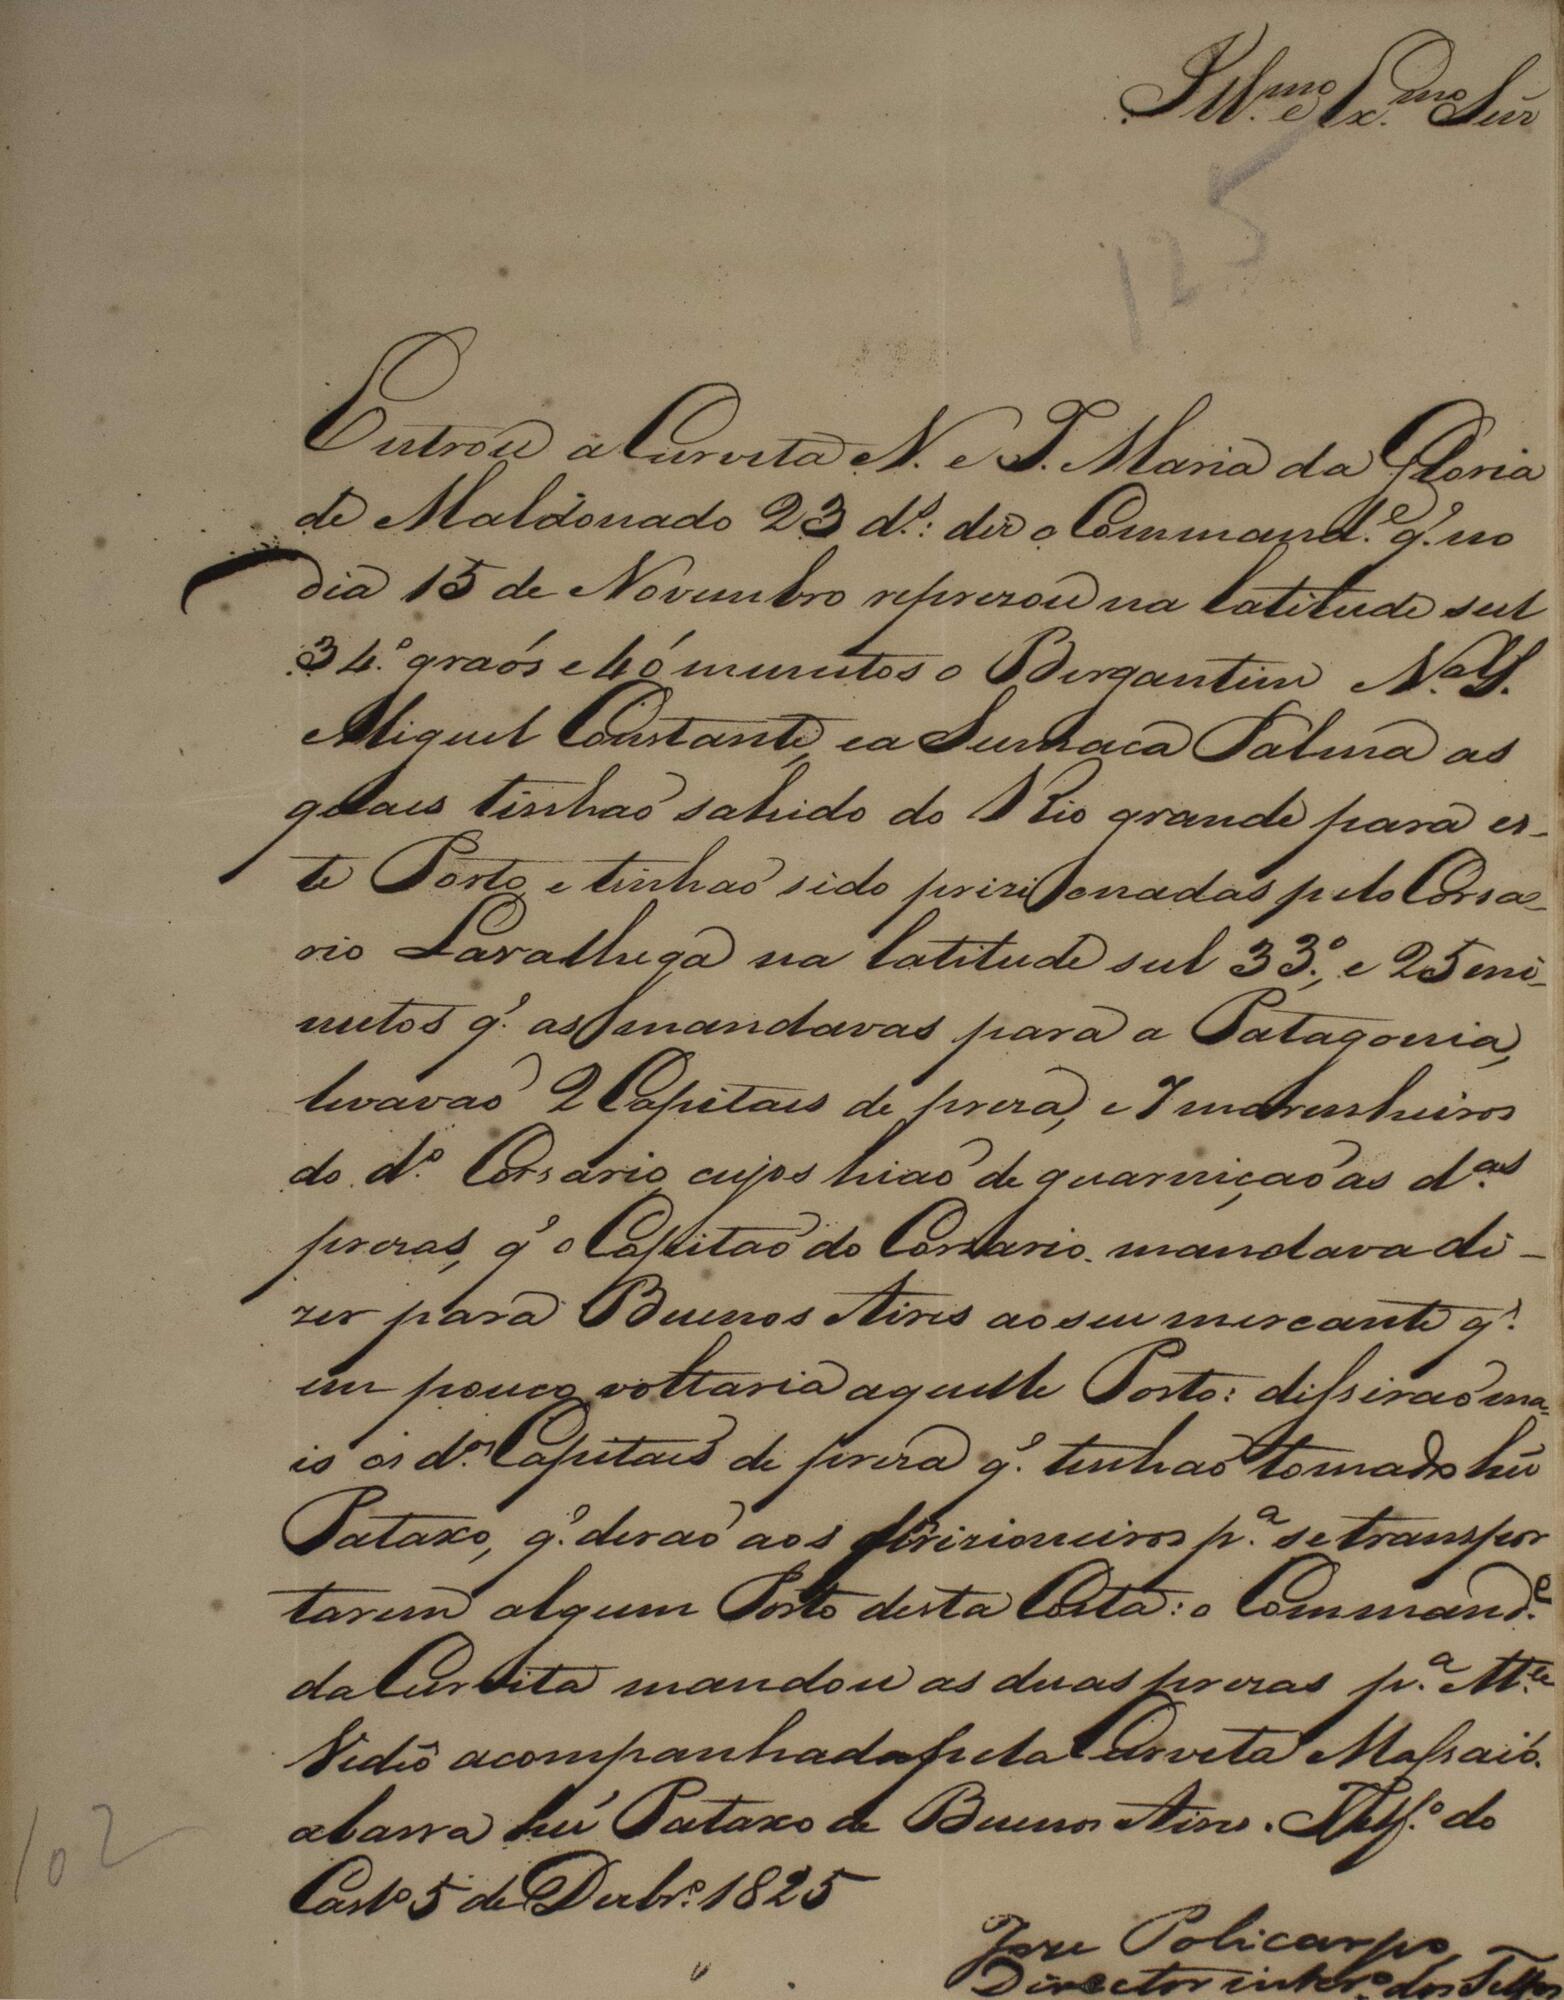 Ill.mo e Ex.mo Snr
125
Entrou a Curveta N. e I. Maria da Gloria
de Maldonado 23 d.s: diz o Command.e q.' no
dia 15 de Novembroreprezou na latitude sul
34.º graós e 40 minutos o Bergantim N.al S.
Miguel Constante, e a Sumaca Palma as
quaes tinhaõ sahido do Rio grande para es-
te Porto e tinhaõ sido prizionadas pelo Corsa-
rio Lavalhega na latitude sul 33.º, e 25 mi-
nutos q.' as mandavas para a Patagonia,
levavaõ 2 Capitaes de preza, e 7 marenheiros
do d.º Corsario, cujos hiaõ de guarniçaõ as d.as
prezas, q' o Capitaõ do Corsario mandava di-
zer para Buenos Aires ao seu mercante q.'
em pouco voltaria aquelle Porto: disseraõ ma-
is os d.os Capitaes de preza q.' tinhaõ tomado hũ
Pataxo, q.' deraõ aos prizioneiros p.a se transpor
tarem algum Porto desta Costa: o Command.e
da Curveta mandou as duas prezas p.a M.te
Vidiõ acompanhadas pela Curveta Massaió.
abarra hũ Pataxo de Buenos Aires. Telf.º do
Cast.º 5 de Dezbr.º 1825
Joze Policarpo
Director inter.º dos Telfos
102